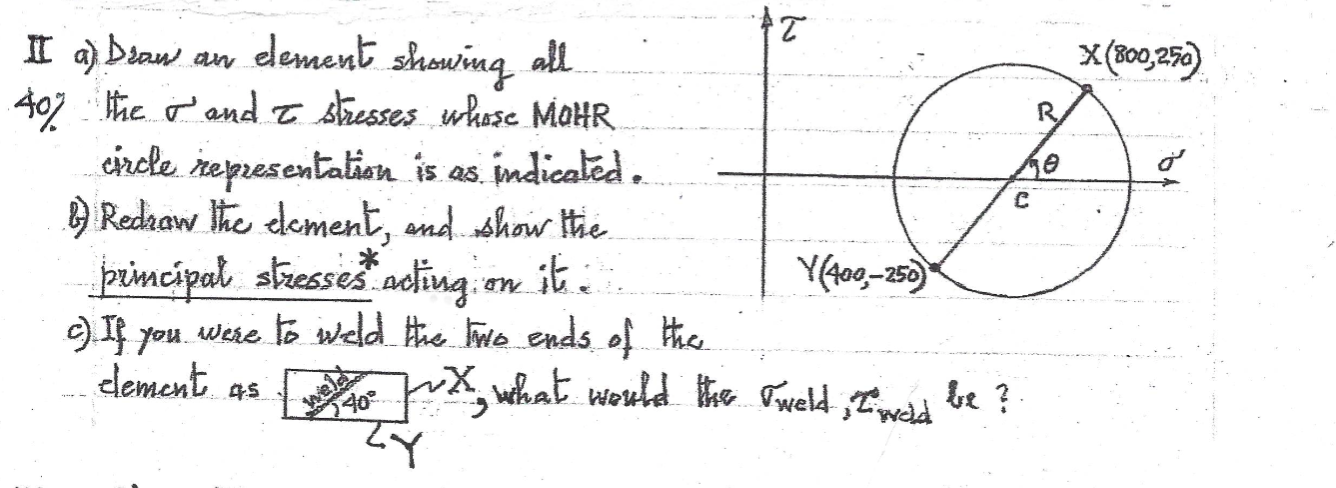 II a) Draw an element showing all
40% the σ and τ stresses whose MOHR
circle representation is as indicated.
b) Redraw the element, and show the
principal stresses* acting on it.
c) If you were to weld the two ends of the
element as weld 40° X, what would the σweld, τweld be?
Y
τ
X(800,250)
R
θ
σ
C
Y(400,-250)